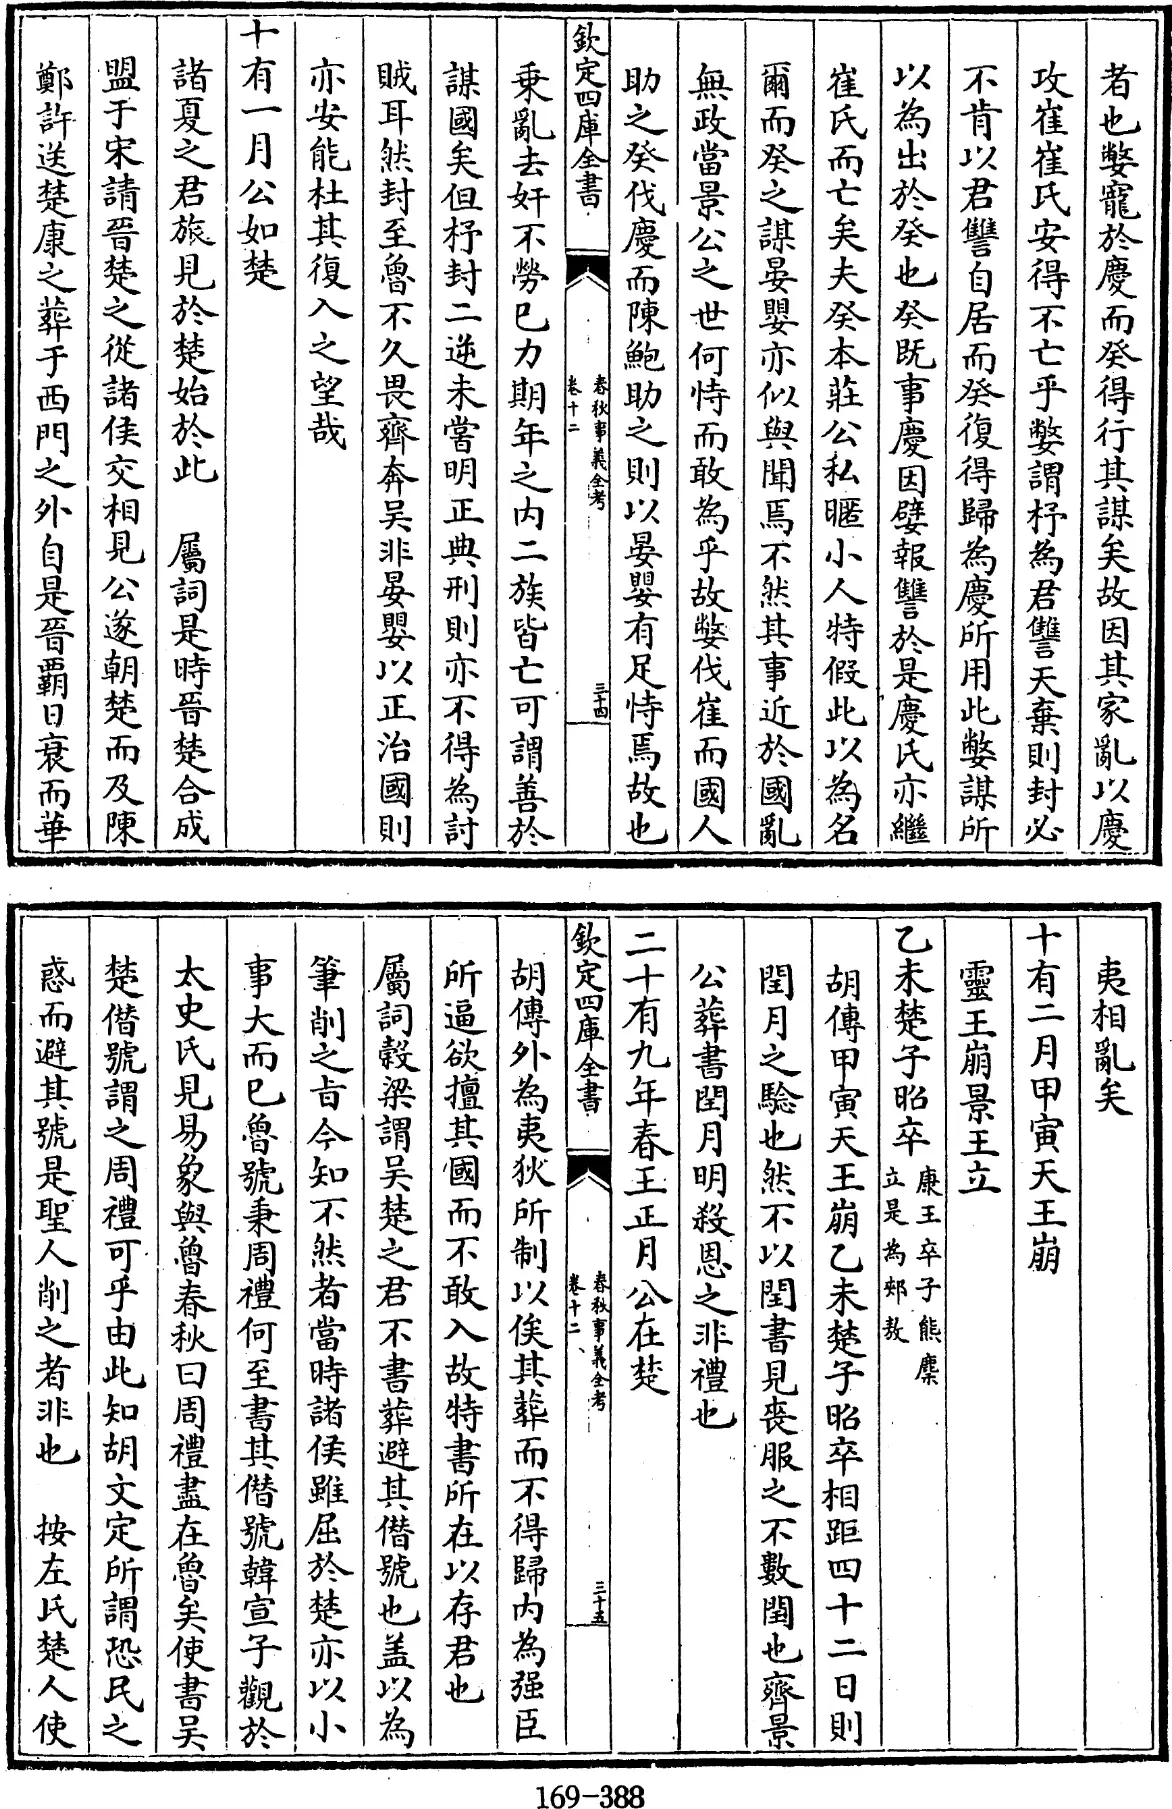 者也嫳寵於慶而癸得行其謀矣故因其家亂以慶
攻崔崔氏安得不亡乎嫳謂杼為君讐天棄則封必
不肯以君讐自居而癸復得歸為慶所用此嫳謀所
以為出於癸也癸既事慶因嬖報讐於是慶氏亦繼
崔氏而亡矣夫癸本莊公私暱小人特假此以為名
爾而癸之謀晏嬰亦似與聞焉不然其事近於國亂
無政當景公之世何恃而敢為乎故嫳伐崔而國人
助之癸伐慶而陳鮑助之則以晏嬰有足恃焉故也
欽定四庫全書
春秋事義全考
卷十二
三十四
乗亂去奸不勞已力期年之内二族皆亡可謂善於
謀國矣但杼封二逆未嘗明正典刑則亦不得為討
賊耳然封至魯不久畏齊奔吴非晏嬰以正治國則
亦安能杜其復入之望哉
十有一月公如楚
諸夏之君旅見於楚始於此　屬詞是時晉楚合成
盟于宋請晉楚之從諸侯交相見公遂朝楚而及陳
鄭許送楚康之葬于西門之外自是晉覇日衰而華
夷相亂矣
十有二月甲寅天王崩
靈王崩景王立
乙未楚子昭卒康王卒子熊麇
立是為郟敖
胡傳甲寅天王崩乙未楚子昭卒相距四十二日則
閏月之驗也然不以閏書見喪服之不數閏也齊景
公葬書閏月明殺恩之非禮也
二十有九年春王正月公在楚
欽定四庫全書
春秋事義全考
卷十二
三十五
胡傳外為夷狄所制以俟其葬而不得歸内為强臣
所逼欲擅其國而不敢入故特書所在以存君也
屬詞穀梁謂吴楚之君不書葬避其僭號也盖以為
筆削之旨今知不然者當時諸侯雖屈於楚亦以小
事大而已魯號秉周禮何至書其僭號韓宣子觀於
太史氏見易象與魯春秋曰周禮盡在魯矣使書吴
楚僭號謂之周禮可乎由此知胡文定所謂恐民之
惑而避其號是聖人削之者非也　按左氏楚人使
169-388